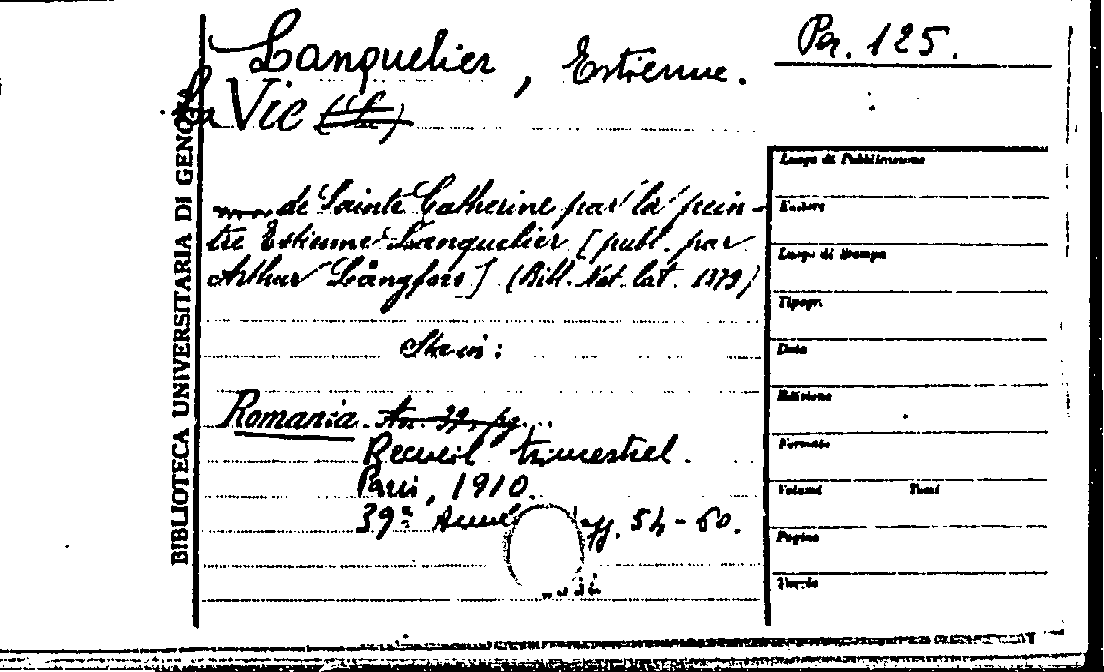 Lanquelier, Estienne.
Per. 125.
La Vie (La)
de Sainte Catherine par la pein-
tre Estienne Lanquelier [publ. par
Arthur Långfors] (Bibl. Nat. lat. 1379)
Romania. An. 39, pg...
Recueil trimestriel.
Paris, 1910.
39ª pp. 54-60.
BIBLIOTECA UNIVERSITARIA DI GENOVA
Luogo di Pubblicazione
Editore
Luogo di Stampa
Tipogr.
Data
Edizione
Formato
Volumi Tomi
Pagine
Tavole